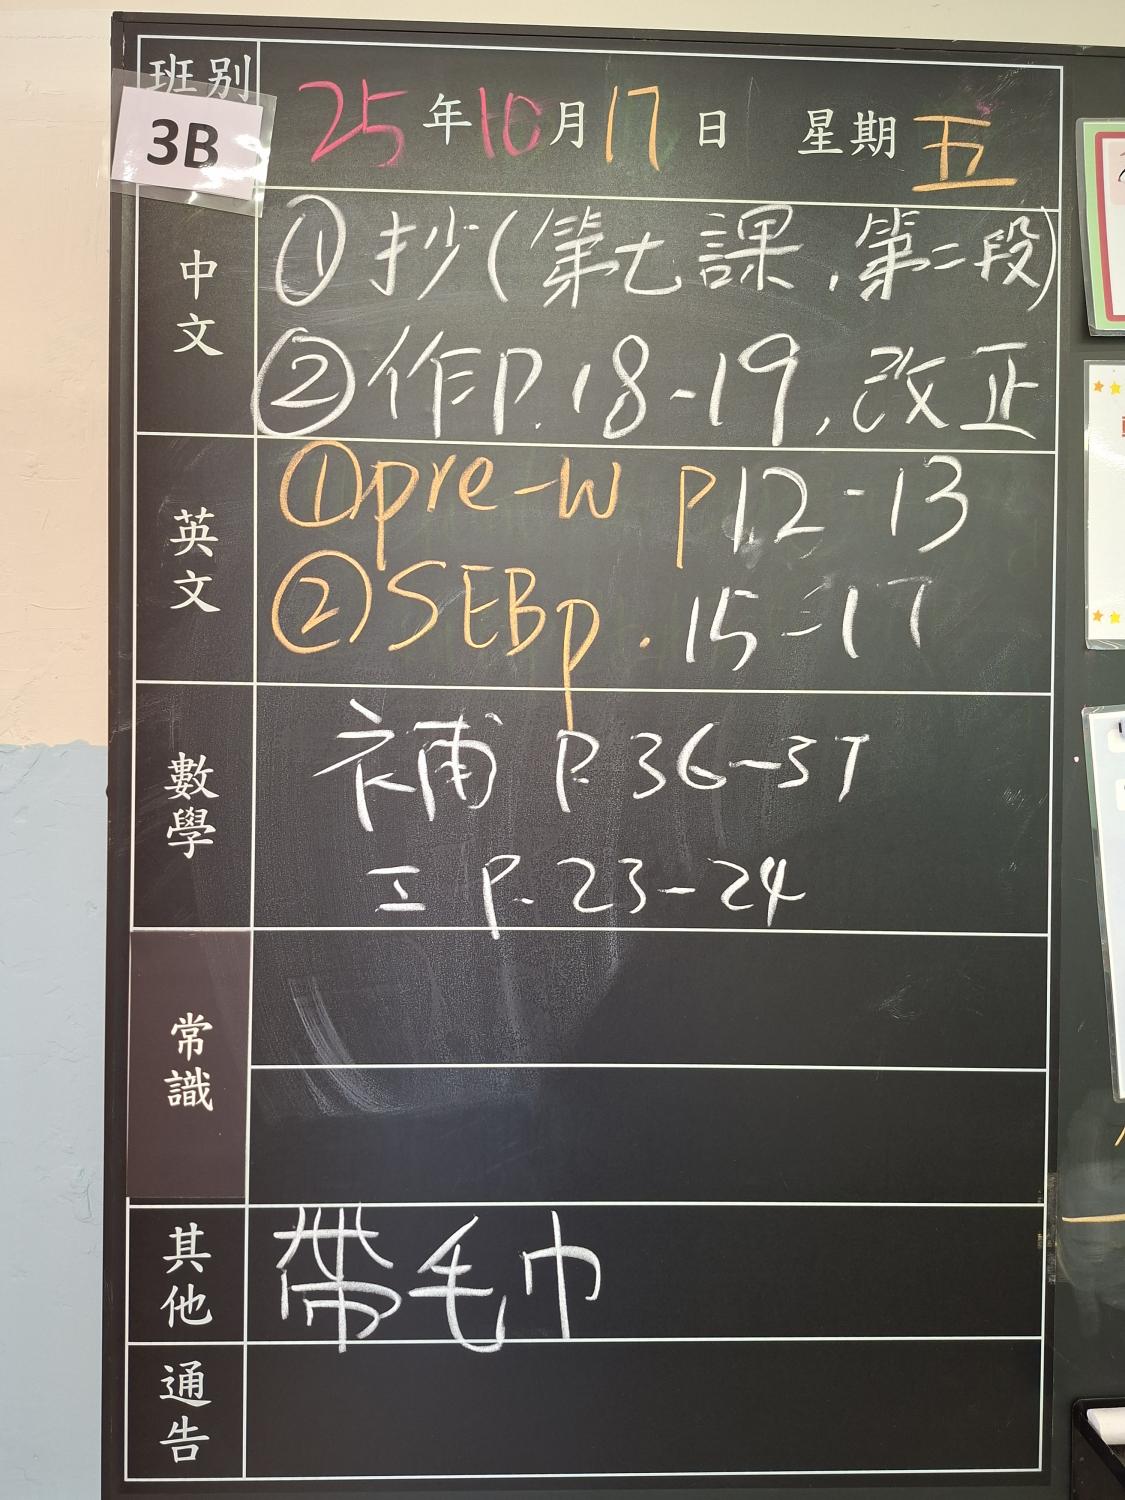 班別
3B
25年10月17日 星期五
中文
①抄(第七課,第二段)
②作P.18-19,改正
英文
①pre-w p12-13
②SEBp.15-17
數學
補 P.36-37
工 P.23-24
常識
其他
帶毛巾
通告